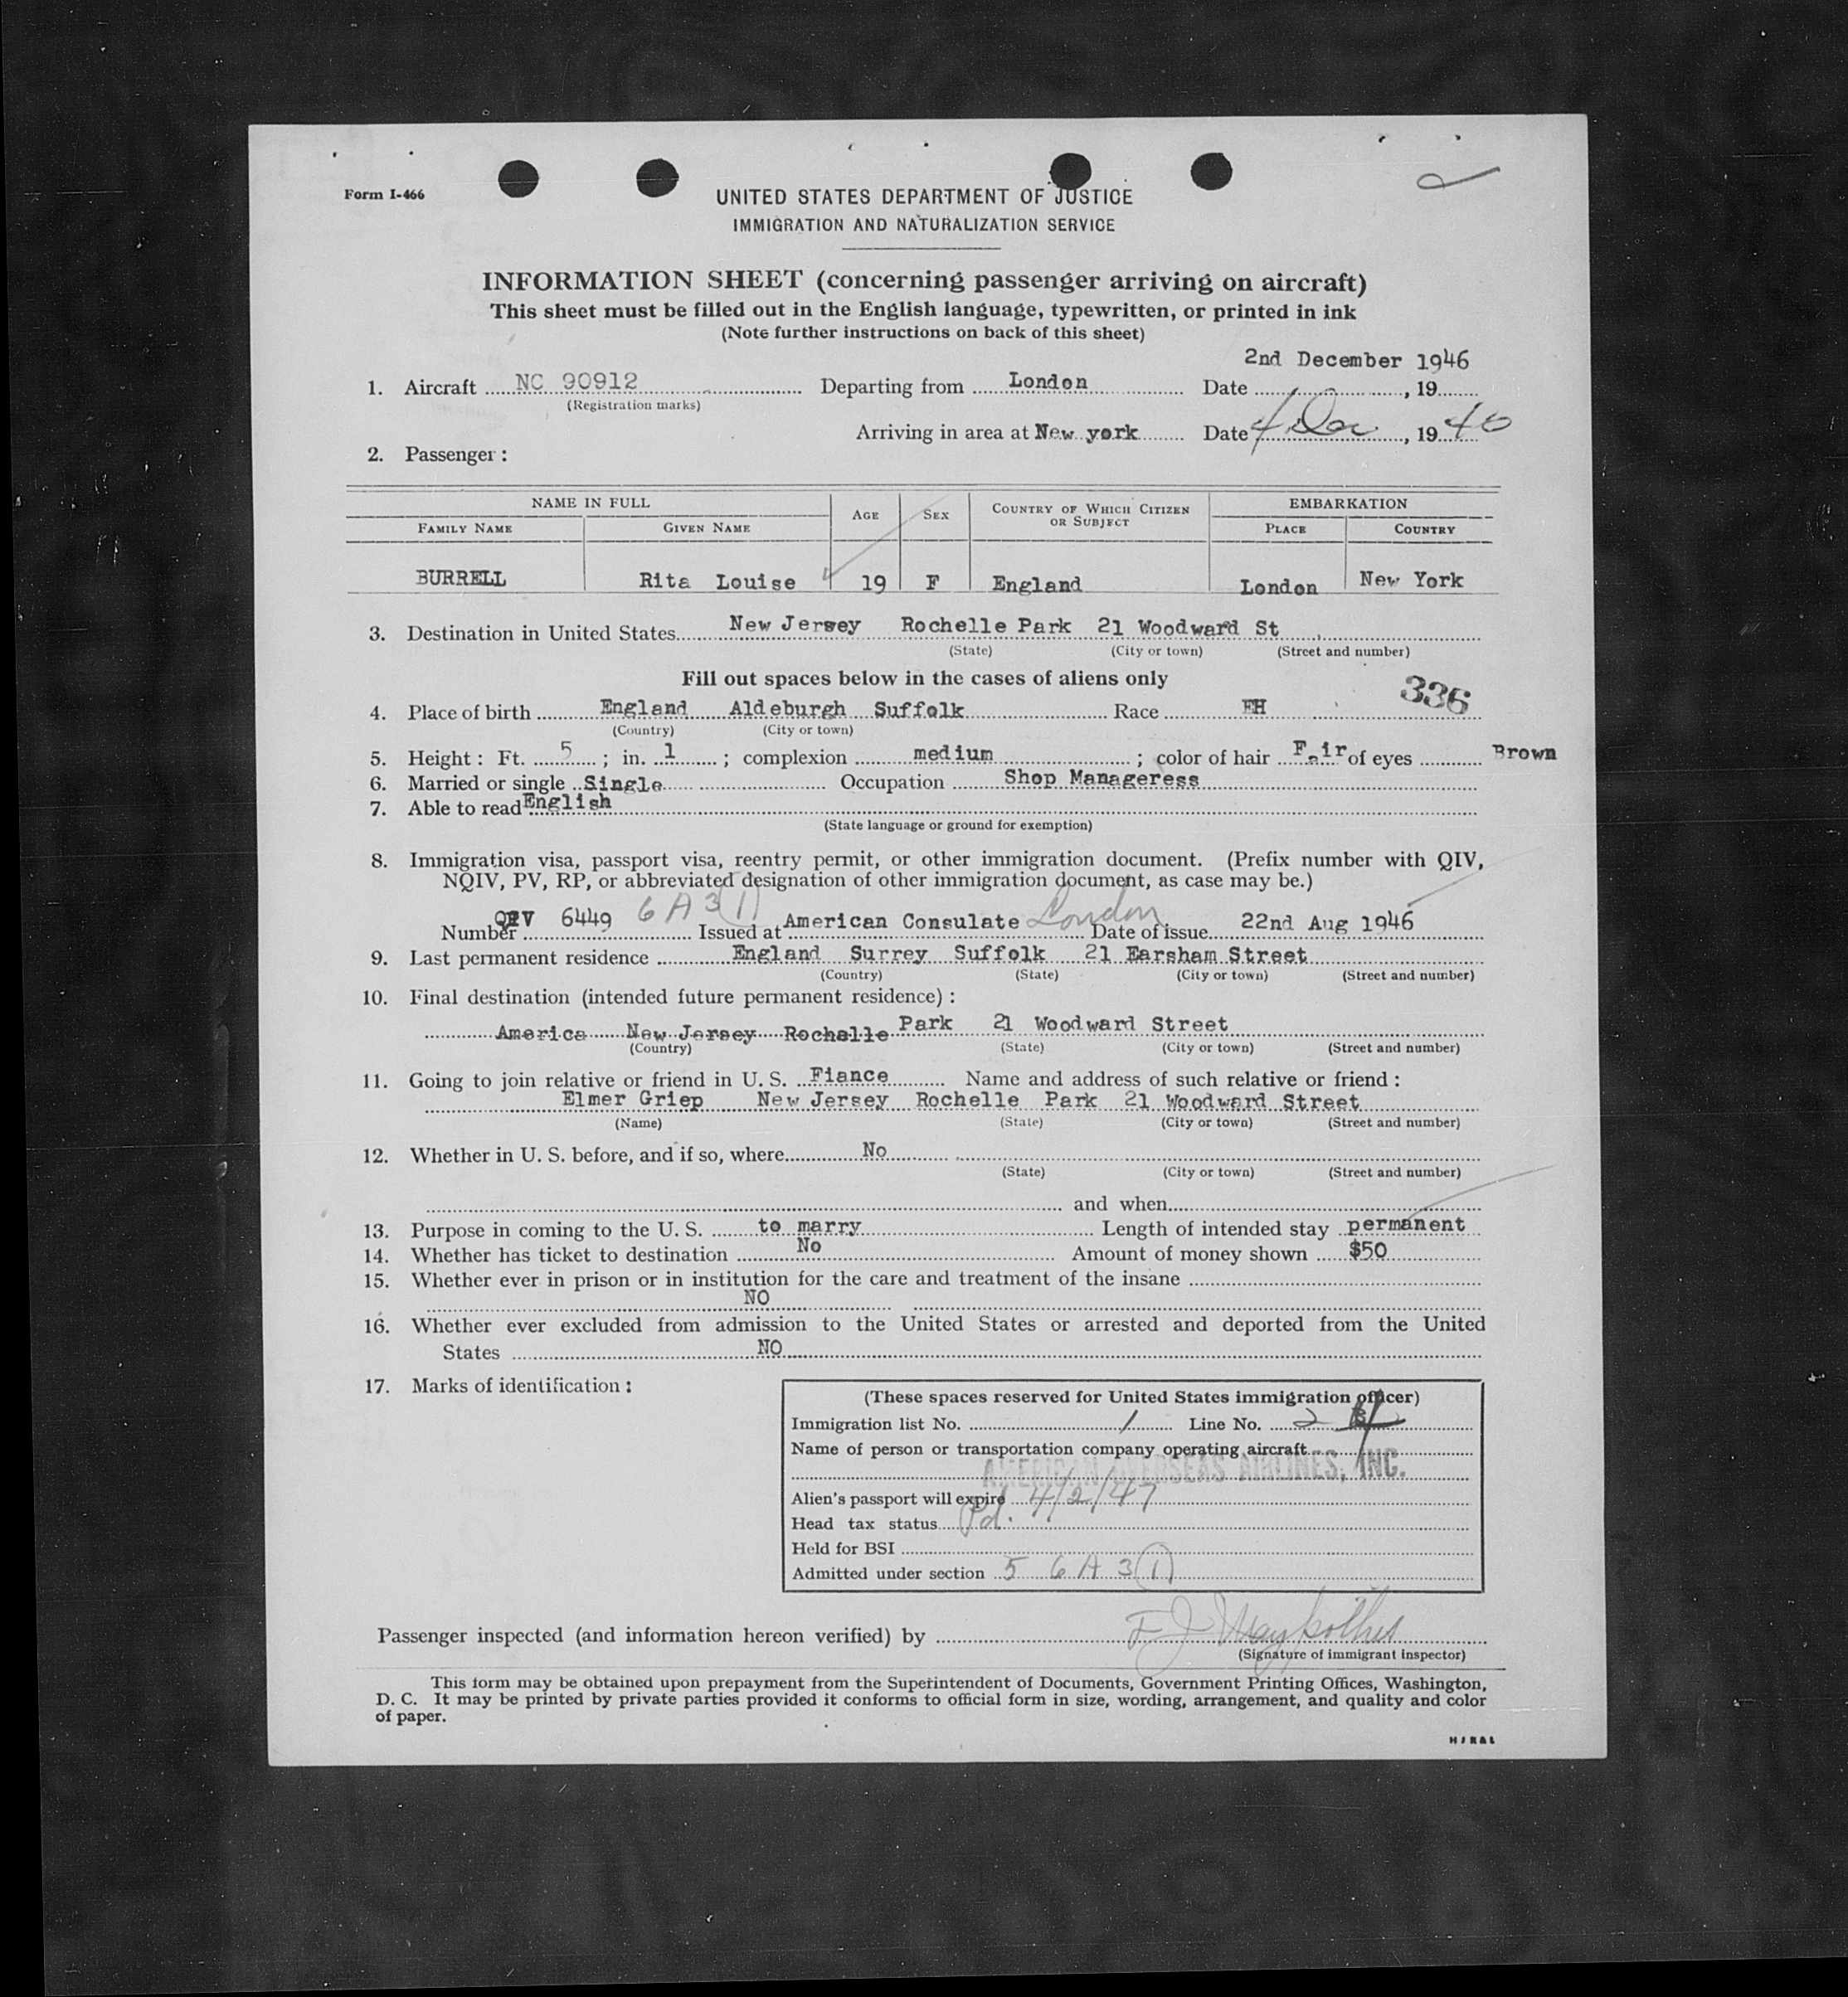 Form I-466
UNITED STATES DEPARTMENT OF JUSTICE
IMMIGRATION AND NATURALIZATION SERVICE
INFORMATION SHEET (concerning passenger arriving on aircraft)
This sheet must be filled out in the English language, typewritten, or printed in ink
(Note further instructions on back of this sheet)
2nd December 1946
1. Aircraft NC 90912 Departing from London Date , 19
(Registration marks)
Arriving in area at New york Date 4 Dec , 19 46
2. Passenger :
NAME IN FULL AGE SEX COUNTRY OF WHICH CITIZEN OR SUBJECT EMBARKATION
FAMILY NAME GIVEN NAME PLACE COUNTRY
BURRELL Rita Louise 19 F England London New York
3. Destination in United States New Jersey Rochelle Park 21 Woodward St
(State) (City or town) (Street and number)
Fill out spaces below in the cases of aliens only
336
4. Place of birth England Aldeburgh Suffolk Race
(Country) (City or town)
5. Height : Ft. 5 ; in. 1 ; complexion medium ; color of hair Fair of eyes Brown
6. Married or single Single Occupation Shop Manageress
7. Able to read English
(State language or ground for exemption)
8. Immigration visa, passport visa, reentry permit, or other immigration document. (Prefix number with QIV,
NQIV, PV, RP, or abbreviated designation of other immigration document, as case may be.)
Number 6449 6 A 3 (1) Issued at American Consulate London Date of issue 22nd Aug 1946
9. Last permanent residence England Surrey Suffolk 21 Earsham Street
(Country) (State) (City or town) (Street and number)
10. Final destination (intended future permanent residence) :
America New Jersey Rochelle Park 21 Woodward Street
(Country) (State) (City or town) (Street and number)
11. Going to join relative or friend in U. S. Fiance Name and address of such relative or friend :
Elmer Griep New Jersey Rochelle Park 21 Woodward Street
(Name) (State) (City or town) (Street and number)
12. Whether in U. S. before, and if so, where No
(State) (City or town) (Street and number)
and when
13. Purpose in coming to the U. S. to marry Length of intended stay permanent
14. Whether has ticket to destination No Amount of money shown $50
15. Whether ever in prison or in institution for the care and treatment of the insane
NO
16. Whether ever excluded from admission to the United States or arrested and deported from the United
States NO
17. Marks of identification :
(These spaces reserved for United States immigration officer)
Immigration list No. 1 Line No. 2
Name of person or transportation company operating aircraft
AMERICAN OVERSEAS AIRLINES, INC.
Alien's passport will expire 4/2/47
Head tax status Pd.
Held for BSI
Admitted under section 5 6 A 3 (1)
Passenger inspected (and information hereon verified) by
(Signature of immigrant inspector)
This form may be obtained upon prepayment from the Superintendent of Documents, Government Printing Offices, Washington,
D. C. It may be printed by private parties provided it conforms to official form in size, wording, arrangement, and quality and color
of paper.